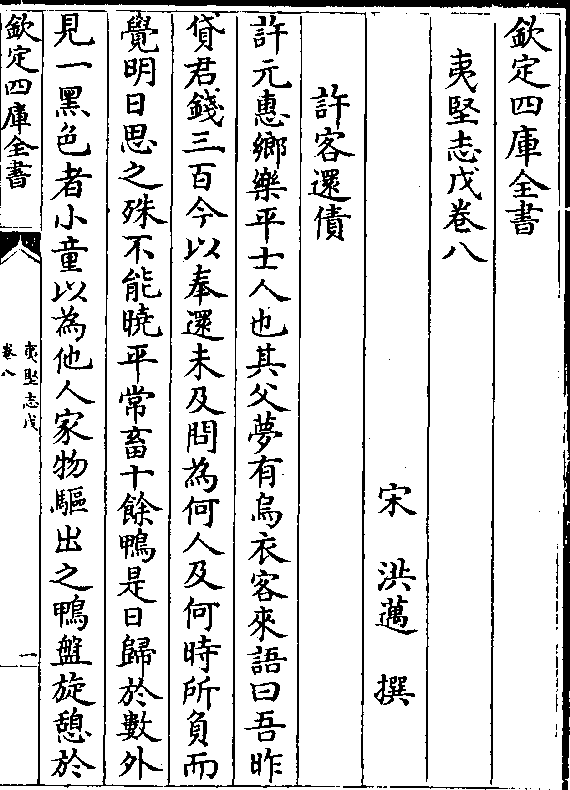 欽定四庫全書
夷堅志戊卷八
宋 洪邁 撰
許客還債
許元惠鄉樂平士人也其父夢有烏衣客來語曰吾昨
貸君錢三百今以奉還未及問為何人及何時所負而
覺明日思之殊不能曉平常畜十餘鴨是日歸於數外
見一黑色者小童以為他人家物驅出之鴨盤旋憩於
欽定四庫全書
夷堅志戊
卷八
一